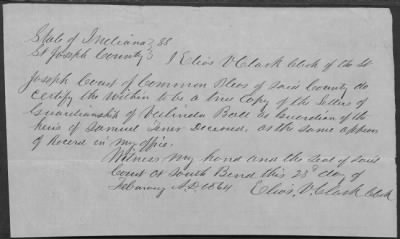 State of Indiana } SS
St Joseph County } I Elias V Clark Clerk of the St
Joseph Court of Common Pleas of said County do
certify the within to be a true Copy of the Letters of
Guardianship of Bode as Guardian of the
heirs of Samuel Deceased, as the same appears
of Record in my office,
Witness my hand and the Seal of said
Court at South Bend this 23d day of
February A.D. 1864 Elias. V. Clark Clerk